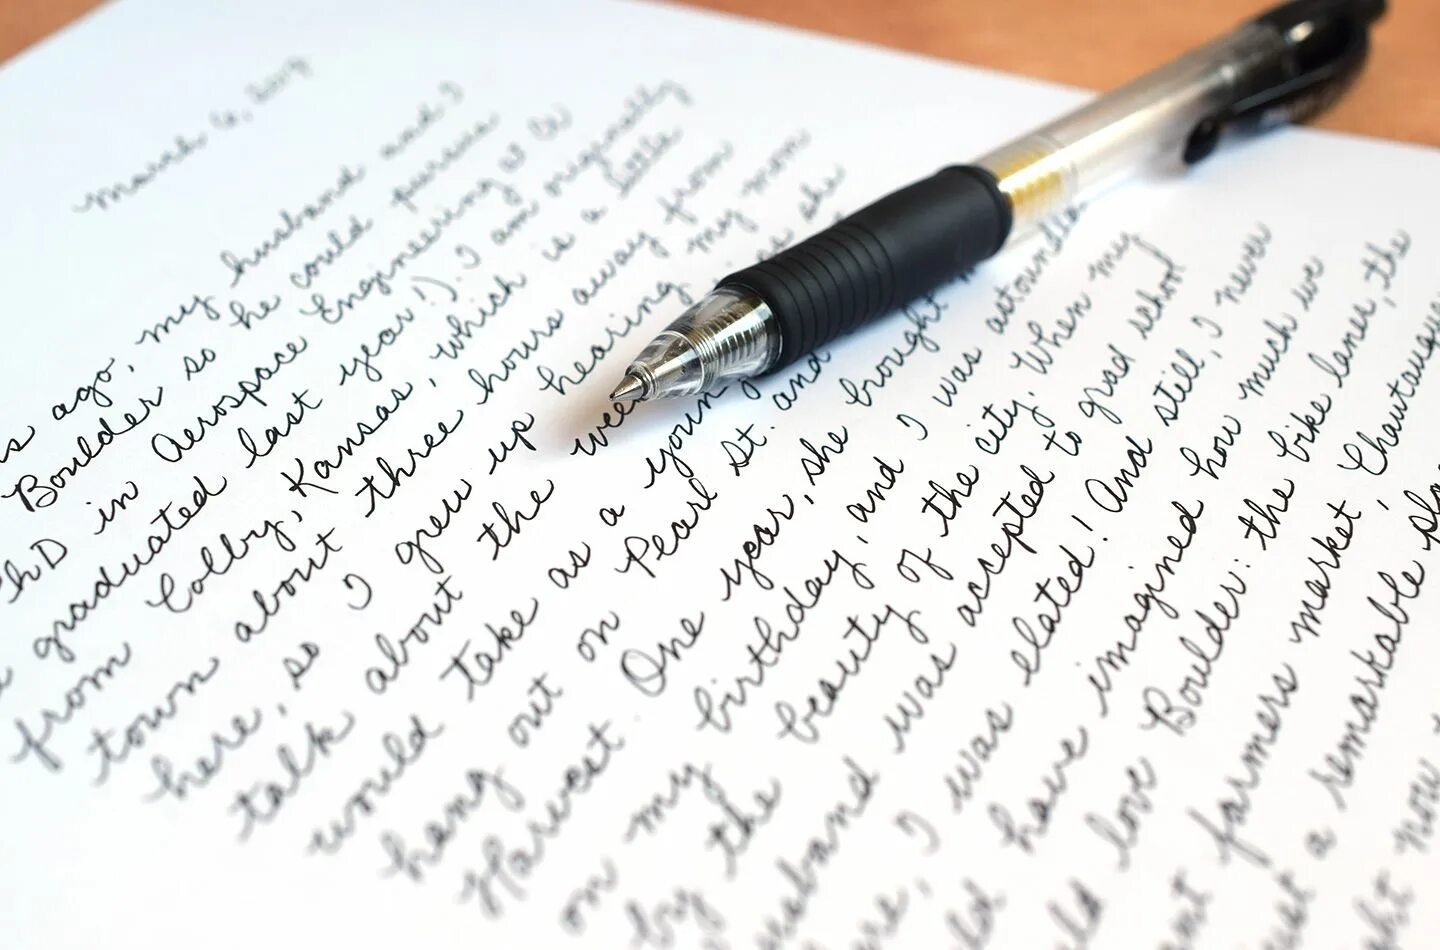 March 6, 2017
ago, my husband and I
Boulder so he could pursue
PhD in Aerospace Engineering at
graduated last year!). I am originally
from Colby, Kansas, which is a little
town about three hours away from
here, so I grew up hearing my mom
talk about the she
would take as a young
hang out on Pearl St. and
Harvest One year, she brought
on my birthday, and I was astounded
by the beauty of the city. When my
husband was accepted to grad school
I was elated! And still, I never
have imagined how much we
love Boulder: the bike lanes, the
farmers market, Chautauqua
a remarkable
now